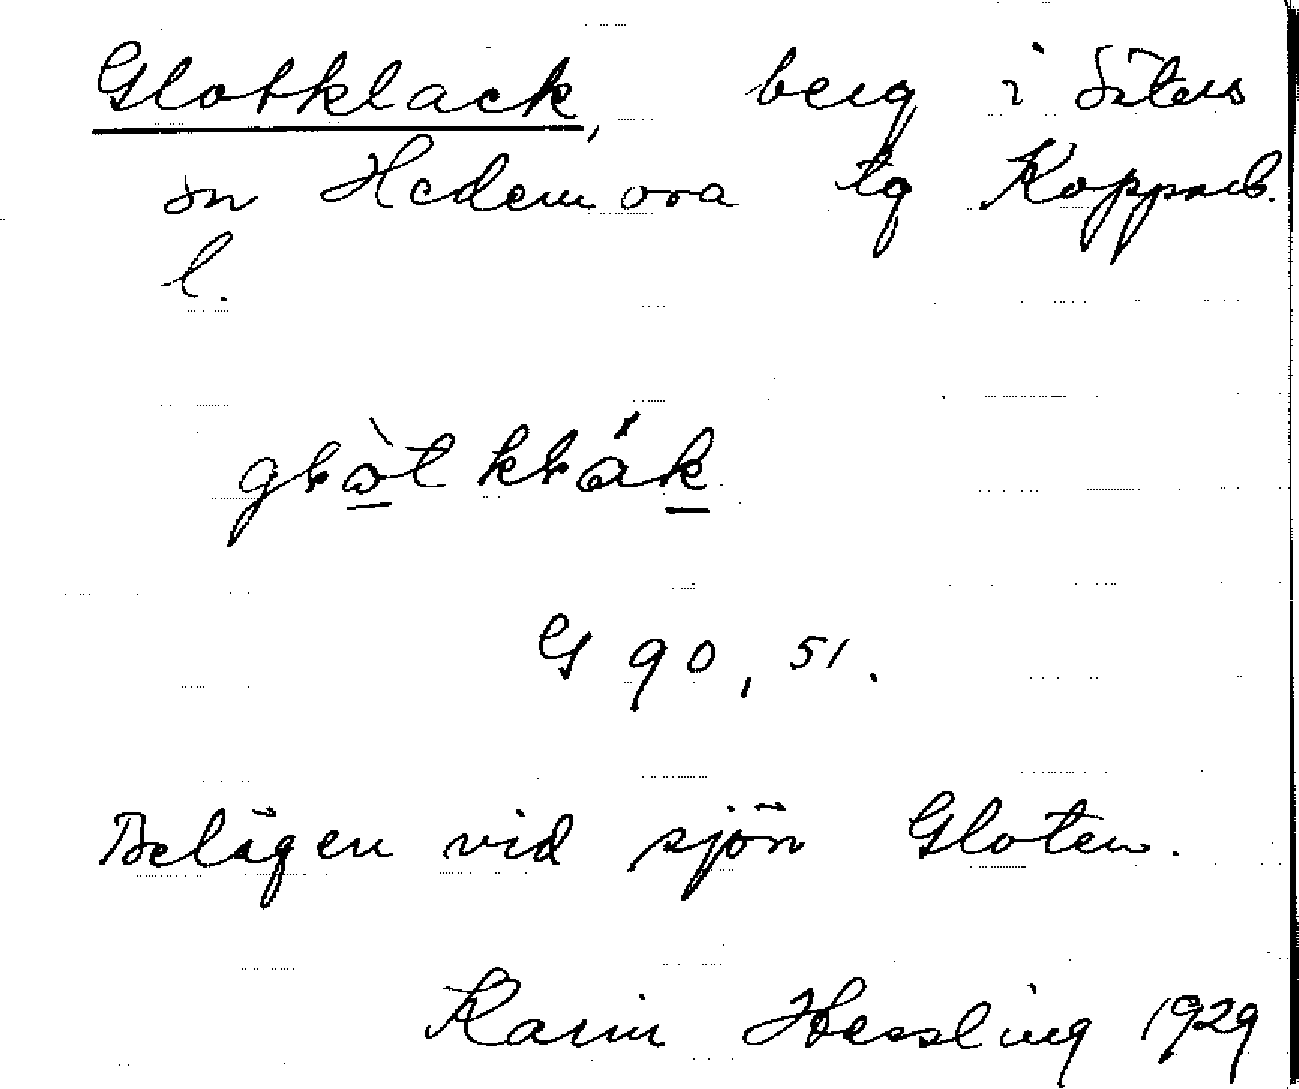 Glotklack, berg i Säters
sn Hedemora tg Kopparb.
l.
G 90, 51.
Belägen vid sjön Gloten.
Karin Hessling 1929